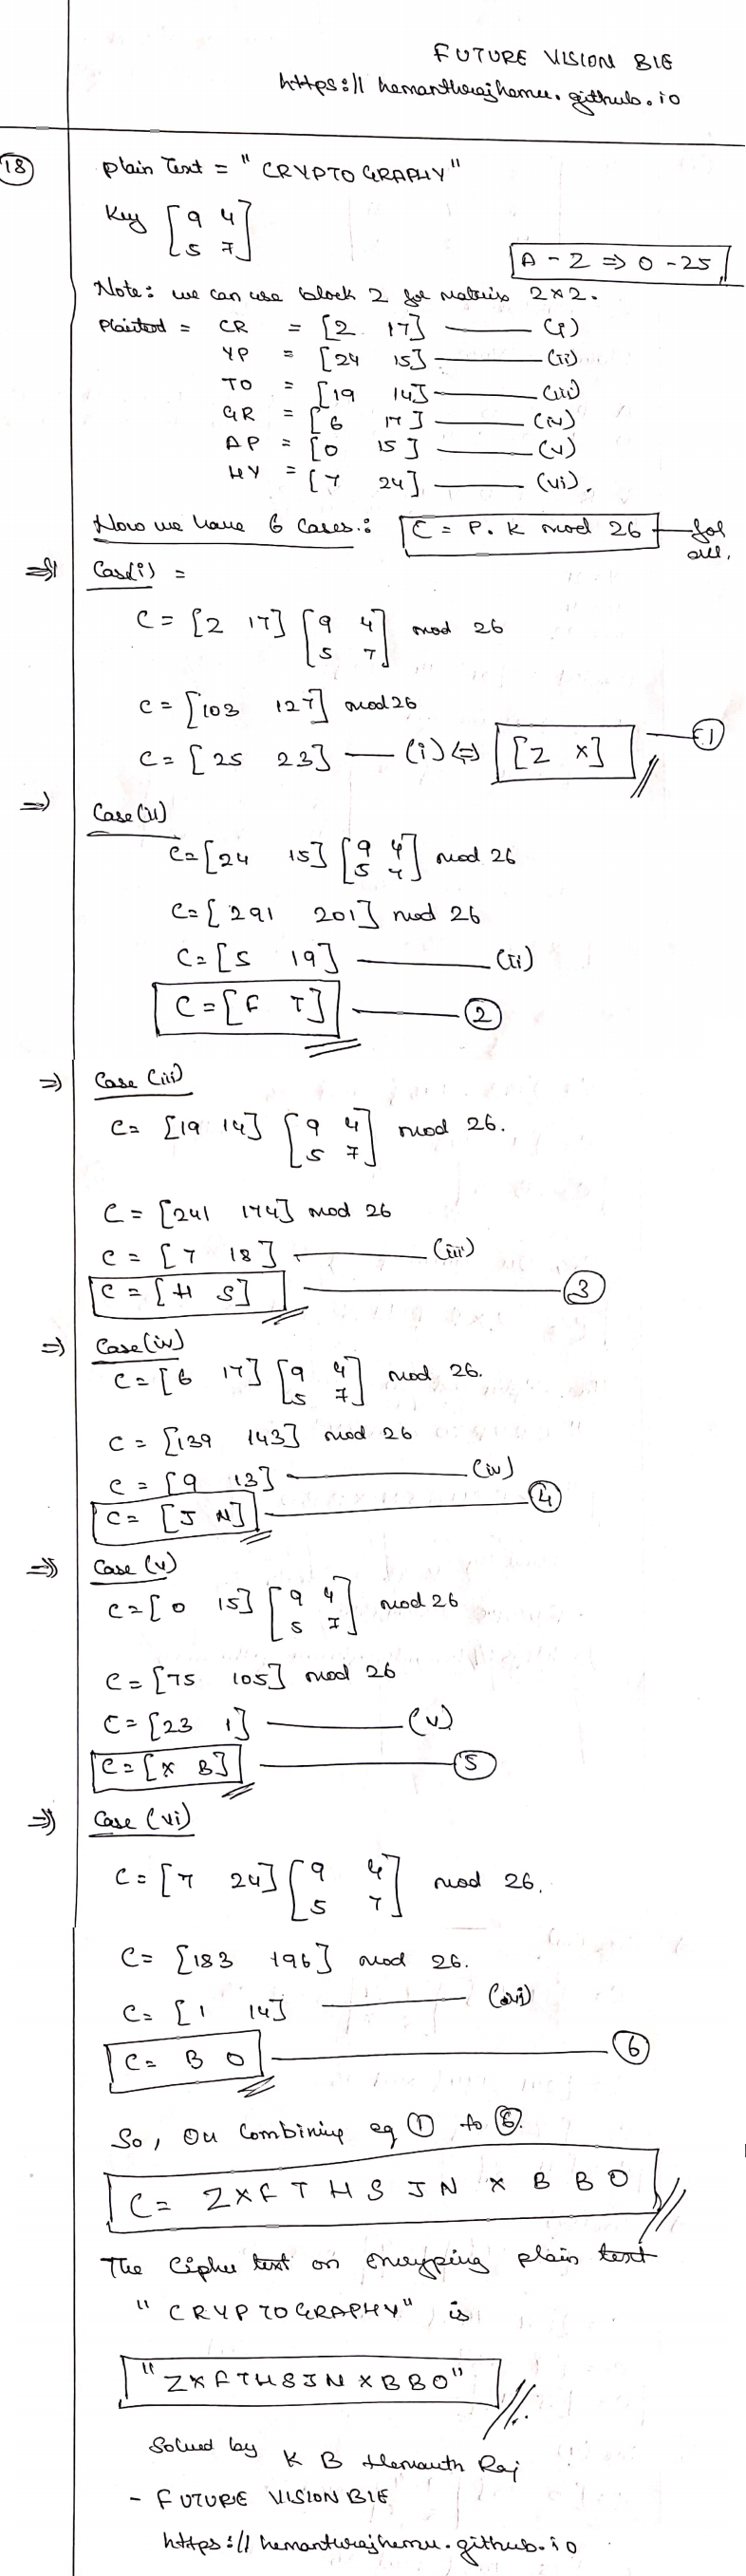 FUTURE VISION BIE
https:// hemanthrajhemu.github.io
18
Plain Text = "CRYPTOGRAPHY"
Key [9 4
5 7]
A - Z ⇒ 0 - 25
Note: we can use block 2 for matrix 2×2.
Plaintext = CR = [2 17] (i)
YP = [24 15] (ii)
TO = [19 14] (iii)
GR = [6 17] (iv)
AP = [0 15] (v)
HY = [7 24] (vi).
Now we have 6 cases: C = P. K mod 26 for all.
⇒ Case(i) =
C = [2 17] [9 4
5 7] mod 26
C = [103 127] mod 26
C = [25 23] — (i) ⇔ [Z X] 1
⇒ Case(ii)
C = [24 15] [9 4
5 7] mod 26
C = [291 201] mod 26
C = [5 19] (ii)
C = [F T] 2
⇒ Case (iii)
C = [19 14] [9 4
5 7] mod 26.
C = [241 174] mod 26
C = [7 18] (iii)
C = [H S] 3
⇒ Case(iv)
C = [6 17] [9 4
5 7] mod 26.
C = [139 143] mod 26
C = [9 13] (iv)
C = [J N] 4
⇒ Case (v)
C = [0 15] [9 4
5 7] mod 26
C = [75 105] mod 26
C = [23 1] (v)
C = [X B] 5
⇒ Case (vi)
C = [7 24] [9 4
5 7] mod 26.
C = [183 196] mod 26.
C = [1 14] (vi)
C = B O 6
So, On Combining eq 1 to 6.
C = Z X F T H S J N X B B O
The Cipher text on encryping plain text
"CRYPTOGRAPHY" is
"ZXFTHSJNXBBO"
Solved by K B Hemanth Raj
- FUTURE VISION BIE
https:// hemanthrajhemu.github.io